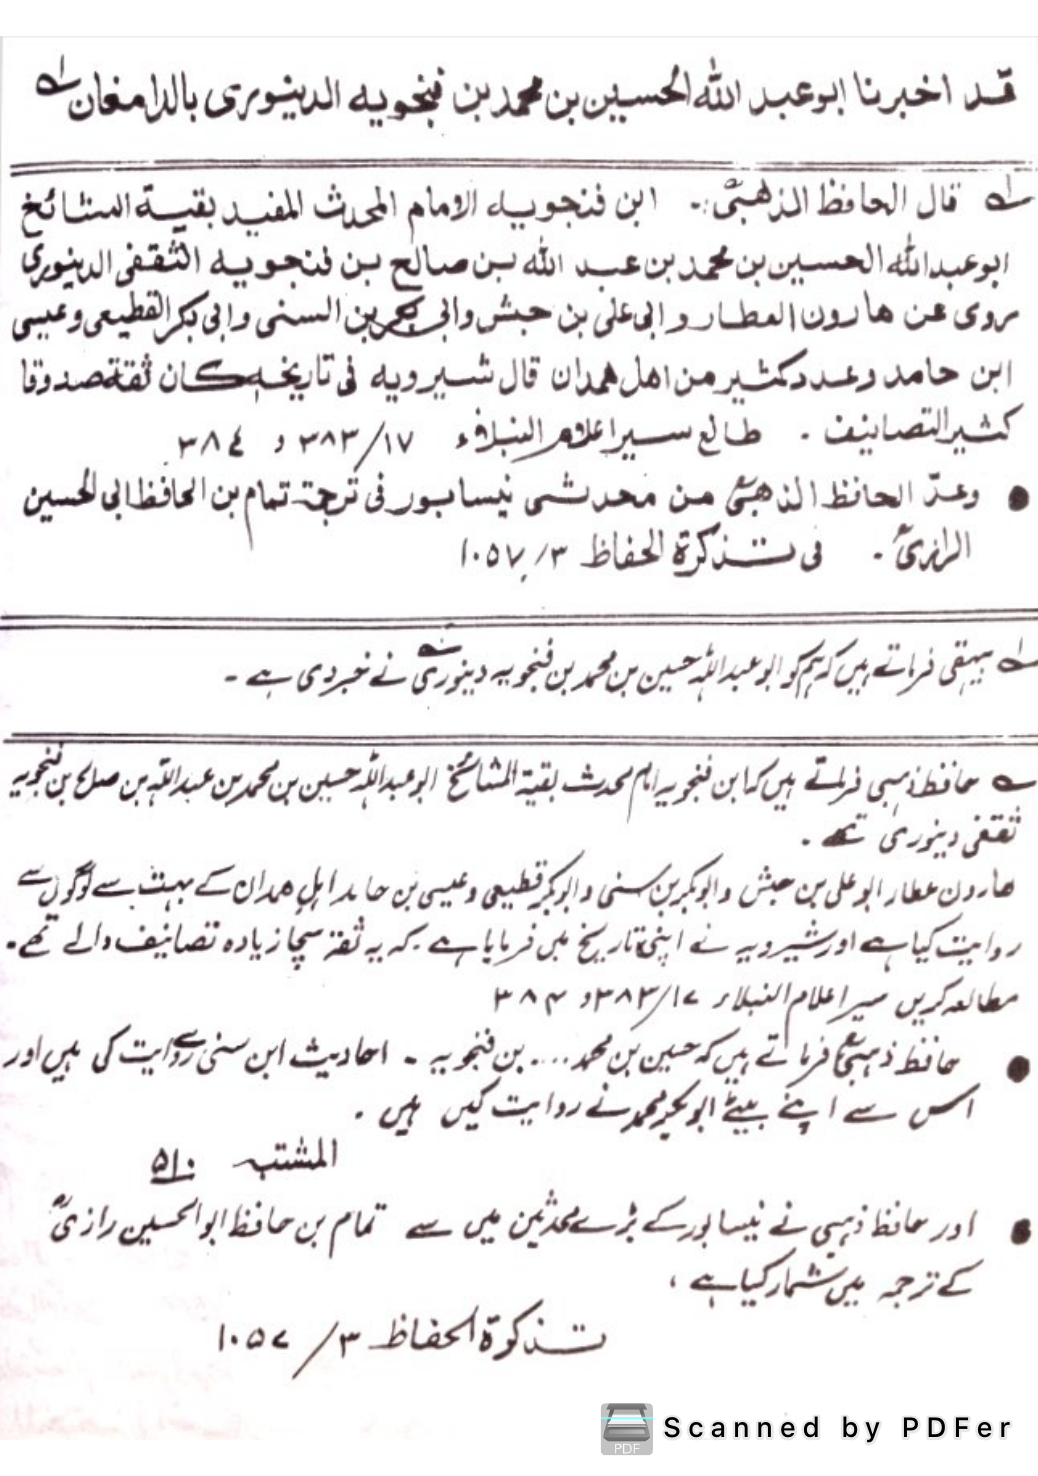 قد اخبرنا ابو عبد الله الحسين بن محمد بن فنجويه الدينورى بالدامغان
قال الحافظ الذهبىؒ :- ابن فنجويه الامام المحدث المفيد بقية المشائخ
ابو عبدالله الحسين بن محمد بن عبد الله بن صالح بن فنجويه الثقفى الدينورى
روى عن هارون العطار و ابى على بن حبش وابى بكر بن السنى و ابى بكر القطيعى وعيسى
ابن حامد وعدد كثير من اهل همدان قال شيرويه فى تاريخه كان ثقة صدوقا
كثير التصانيف . طالع سير اعلام النبلاء ١٧/٣٨٣ و ٣٨٤
● وعدّ الحافظ الذهبىؒ من محدثى نيسابور فى ترجمة تمام بن الحافظ ابى الحسين
الرازىؒ . فى تذكرة الحفاظ ٣/١٠٥٧
بیہقی فرماتے ہیں کہ ہم کو ابو عبداللہ حسین بن محمد بن فنجویہ دینوریؒ نے خبر دی ہے ۔
حافظ ذہبی فرماتے ہیں کہ ابن فنجویہ امام محدث بقیۃ المشائخ ابو عبداللہ حسین بن محمد بن عبداللہ بن صالح بن فنجویہ
ثقفی دینوری تھے ۔
ھارون عطار ابو علی بن حبش و ابوبکر بن سنی و ابوبکر قطیعی و عیسی بن حامد اہل ھمدان کے بہت سے لوگوں سے
روایت کیا ہے اور شیرویہ نے اپنی تاریخ میں فرمایا ہے کہ یہ ثقہ سچا زیادہ تصانیف والے تھے ۔
مطالعہ کریں سیر اعلام النبلاء ١٧/٣٨٣ و ٣٨٤
● حافظ ذہبیؒ فرماتے ہیں کہ حسین بن محمد .... بن فنجویہ ۔ احادیث ابن سنی سے روایت کی ہیں اور
اس سے اپنے بیٹے ابوبکر محمد نے روایت کیں ہیں ۔
المشتبہ ۵۱۰
● اور حافظ ذہبی نے نیسابور کے بڑے محدثین میں سے تمام بن حافظ ابو الحسین رازیؒ
کے ترجمہ میں شمار کیا ہے ،
تذكرة الحفاظ ٣/ ١٠٥٧
PDF
Scanned by PDFer